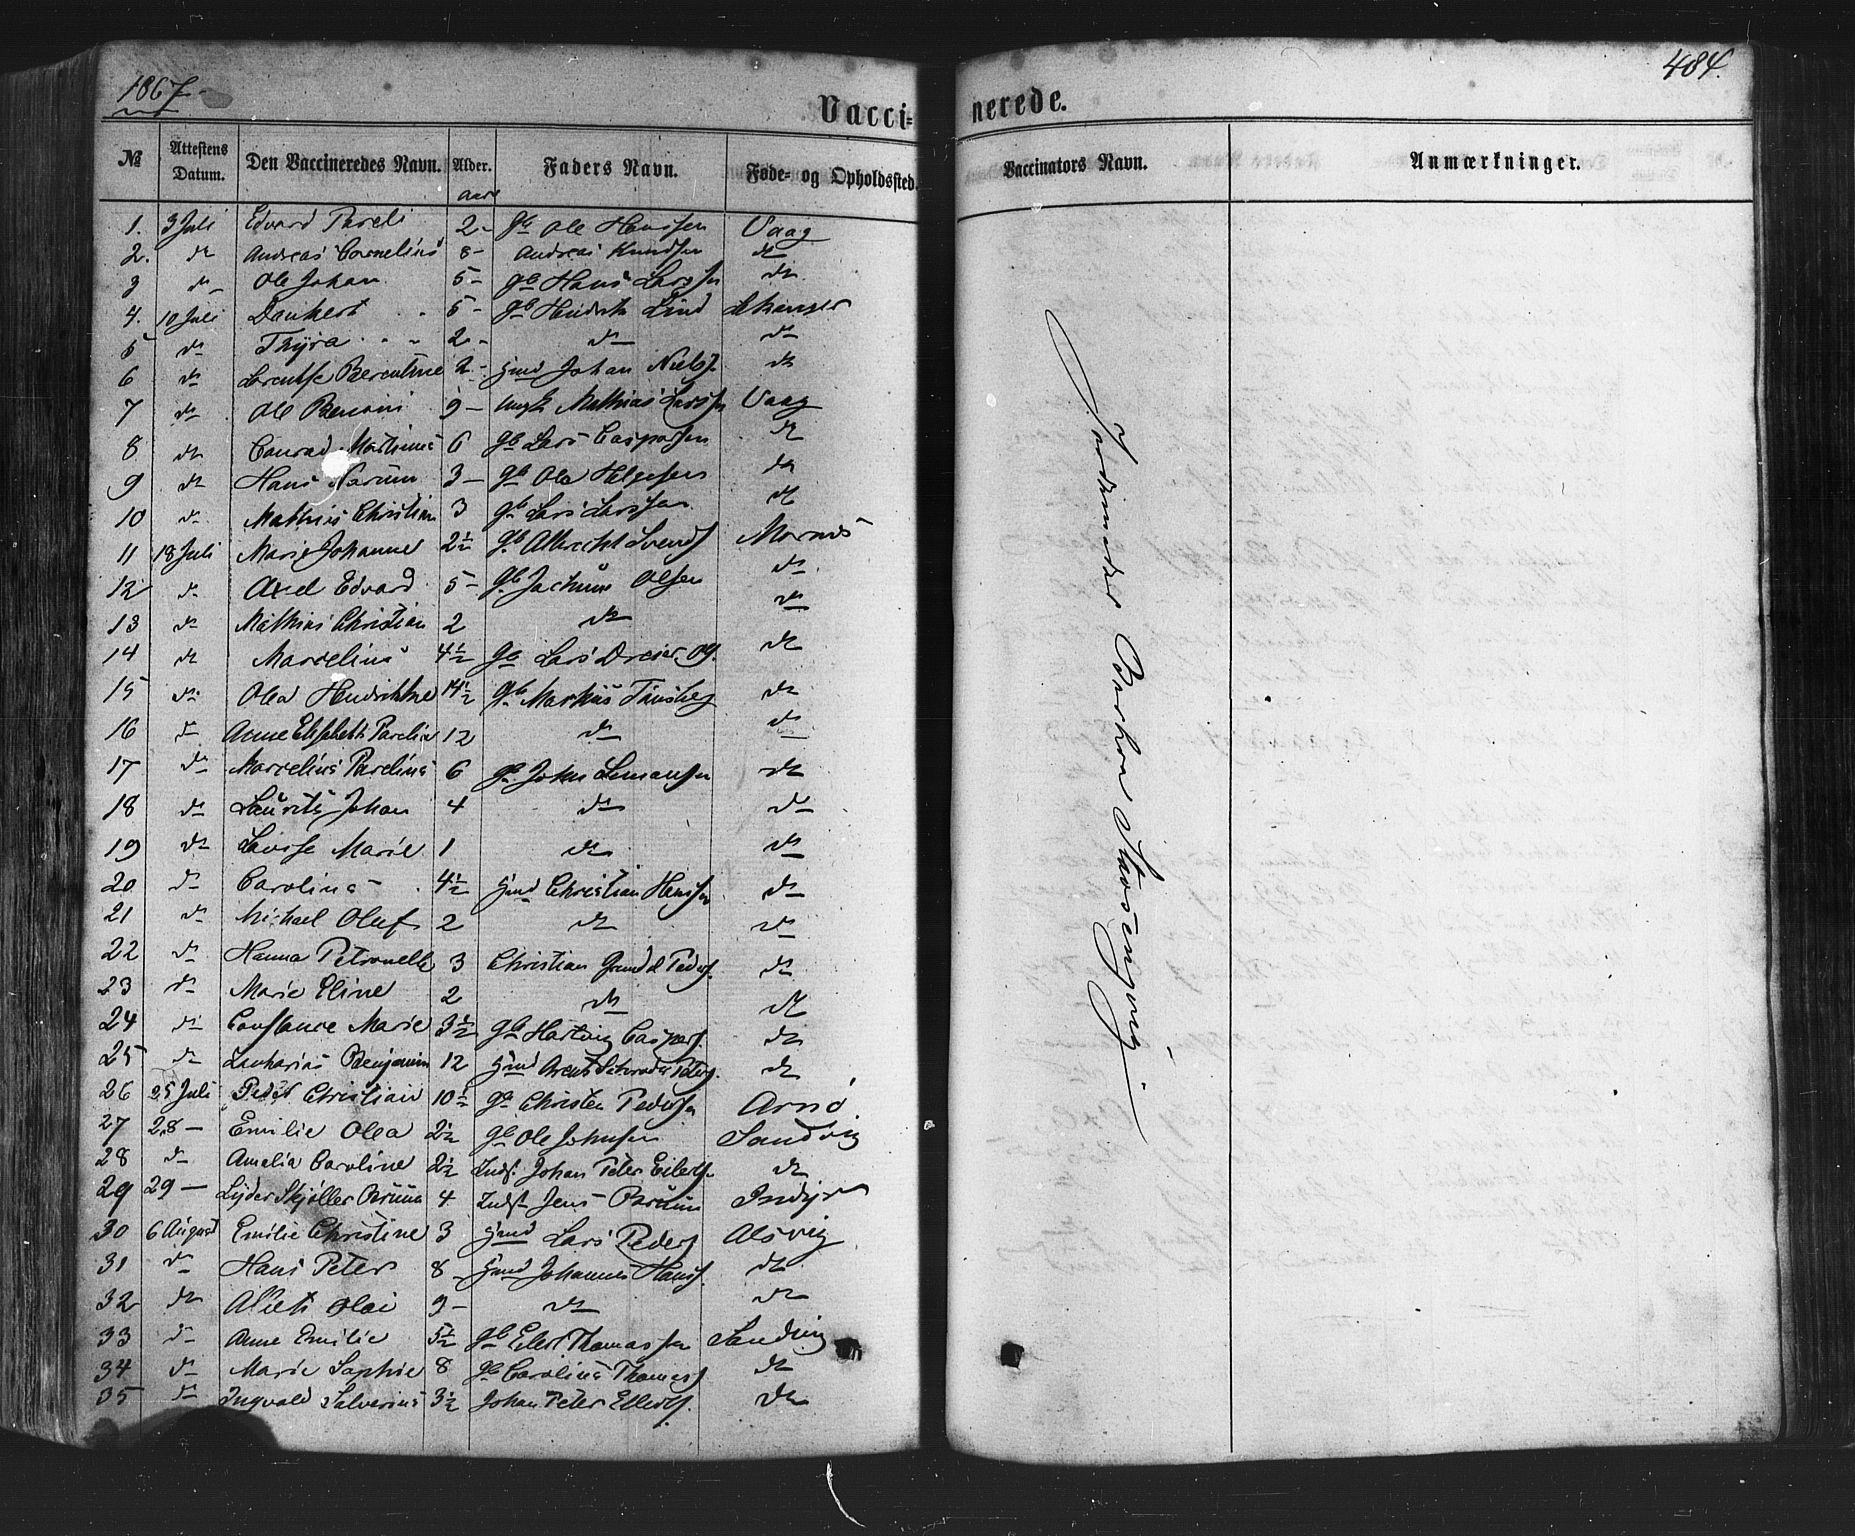 1867.
484.
Vaccinerede.
№ Attestens Datum. Den Vaccineredes Navn. Alder. Faders Navn. Føde- og Opholdssted. Vaccinators Navn. Anmærkninger.
Aar
1. 3 Juli Edvard Pareli 2 - Gb Ole Hanssen Vaag
2. do Andreas Cornelius 8 - Andreas Knudsen do
3 do Ole Johan 5 - Gb Hans Larssen do
4. 10 Juli Dankert 5 - Gb Hendrik Lind
5 do Thyra 2 - do do
6 do Berentine 2 - Hmd Johan Nielss. do
7 do Ole Benoni 9 - Mathias Larssen Vaag
8 do Conrad Martinus 6 Gb Lars Caspersen do
9 do Hans Narum 3 - Gb Ole Helgesen do
10 do Mathias Christian 3 Gb Lars Larssen do
11 18 Juli Marie Johanne 2½ Gb Albrecht Svends Mornes
12 do Axel Edvard 5 - Gb Jachum Olsen do
13 do Mathias Christian 2 do do
14 do Marselius 4½ Gb Lars Dreier Ols. do
15 do Olea Hendrikke 14½ Gb Markus Tinsberg do
16 do Anne Elisabeth Parelia 12 do do
17 do Marcelius Parelius 6 Gb Johan do
18 do Laurits Johan 4 do do
19 do Lovise Marie 1 do do
20 do Carolina 4½ Hmd Christian Hanssen do
21 do Michael Oluf 2 do do
22 do Hanna Petronelle 3 Christian Grundel Peders. do
23 do Marie Eline 2 do do
24 do Constance Marie 3½ Gb Hartvig Caspers. do
25 do Zacharias Benjamin 12 Hmd Arent Schroder Peters. do
26 25 Juli Peder Christian 10½ Gb Christen Pedersen Arnö
27 28 - Emilie Olea 2½ Gb Ole Johnsen Sandvig
28 do Amalia Caroline 2½ Inds. Johan Peter Eilerts. do
29 29 - Lyder Skjøller Bruun 4. Inds. Jens Bruun Indyr
30 6 August Emilie Christine 3 Hmd Lars Peders Alsvig
31 do Hans Peter 8 - Hmd Johannes Hanss. do
32 do Olai 9 - do do
33 do Anne Emilie 5½ Gb Eilert Thomassen Sandvig
34 do Marie Sophie 8 Gb Carolius Thomass do
35 do Ingvald Salverius 3½ Johan Peter Eilerts. do
Jordemoder Storsengveig